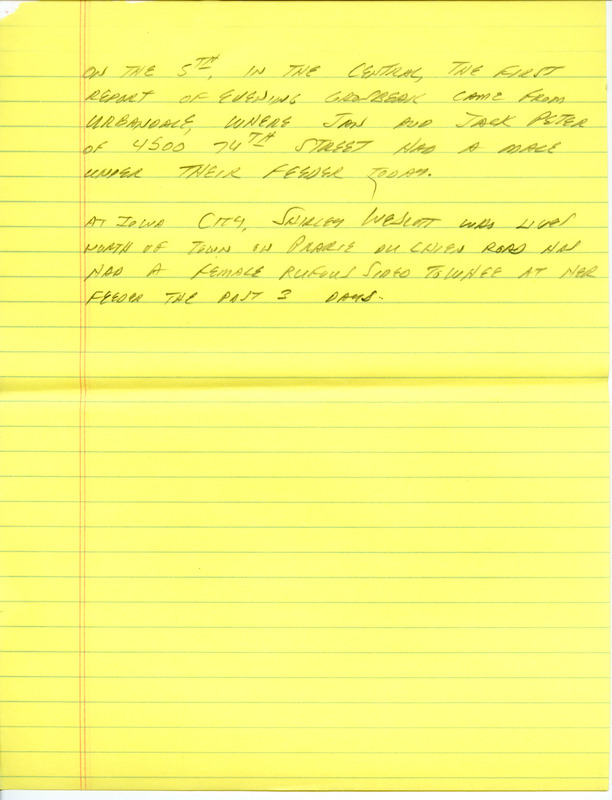 ON THE 5TH, IN THE CENTRAL, THE FIRST
REPORT OF EVENING GROSBEAK CAME FROM
URBANDALE, WHERE JAN AND JACK PETER
OF 4500 74TH STREET HAD A MALE
UNDER THEIR FEEDER TODAY.
AT IOWA CITY, SHIRLEY WHO LIVES
NORTH OF TOWN ON PRARIE DU CHIEN ROAD HAS
HAD A FEMALE RUFOUS SIDED TOWHEE AT HER
FEEDER THE PAST 3 DAYS.